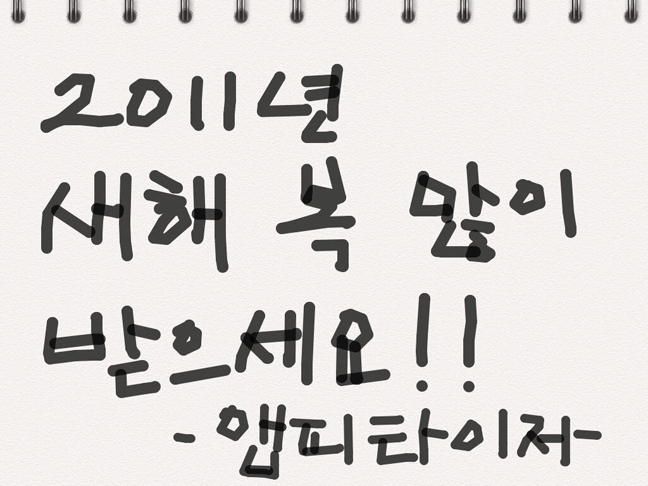 2011년
새해 복 많이
받으세요!!
- 앱피타이저-